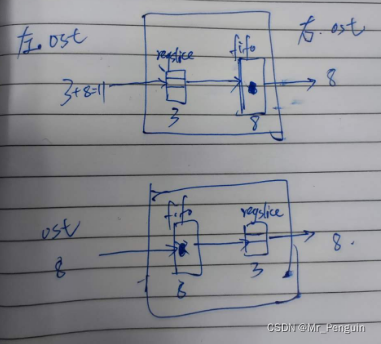 左.ost
右.ost
regslice
fifo
3+8=11
8
3
8
fifo
regslice
ost
8
8.
8
3
CSDN @Mr_Penguin